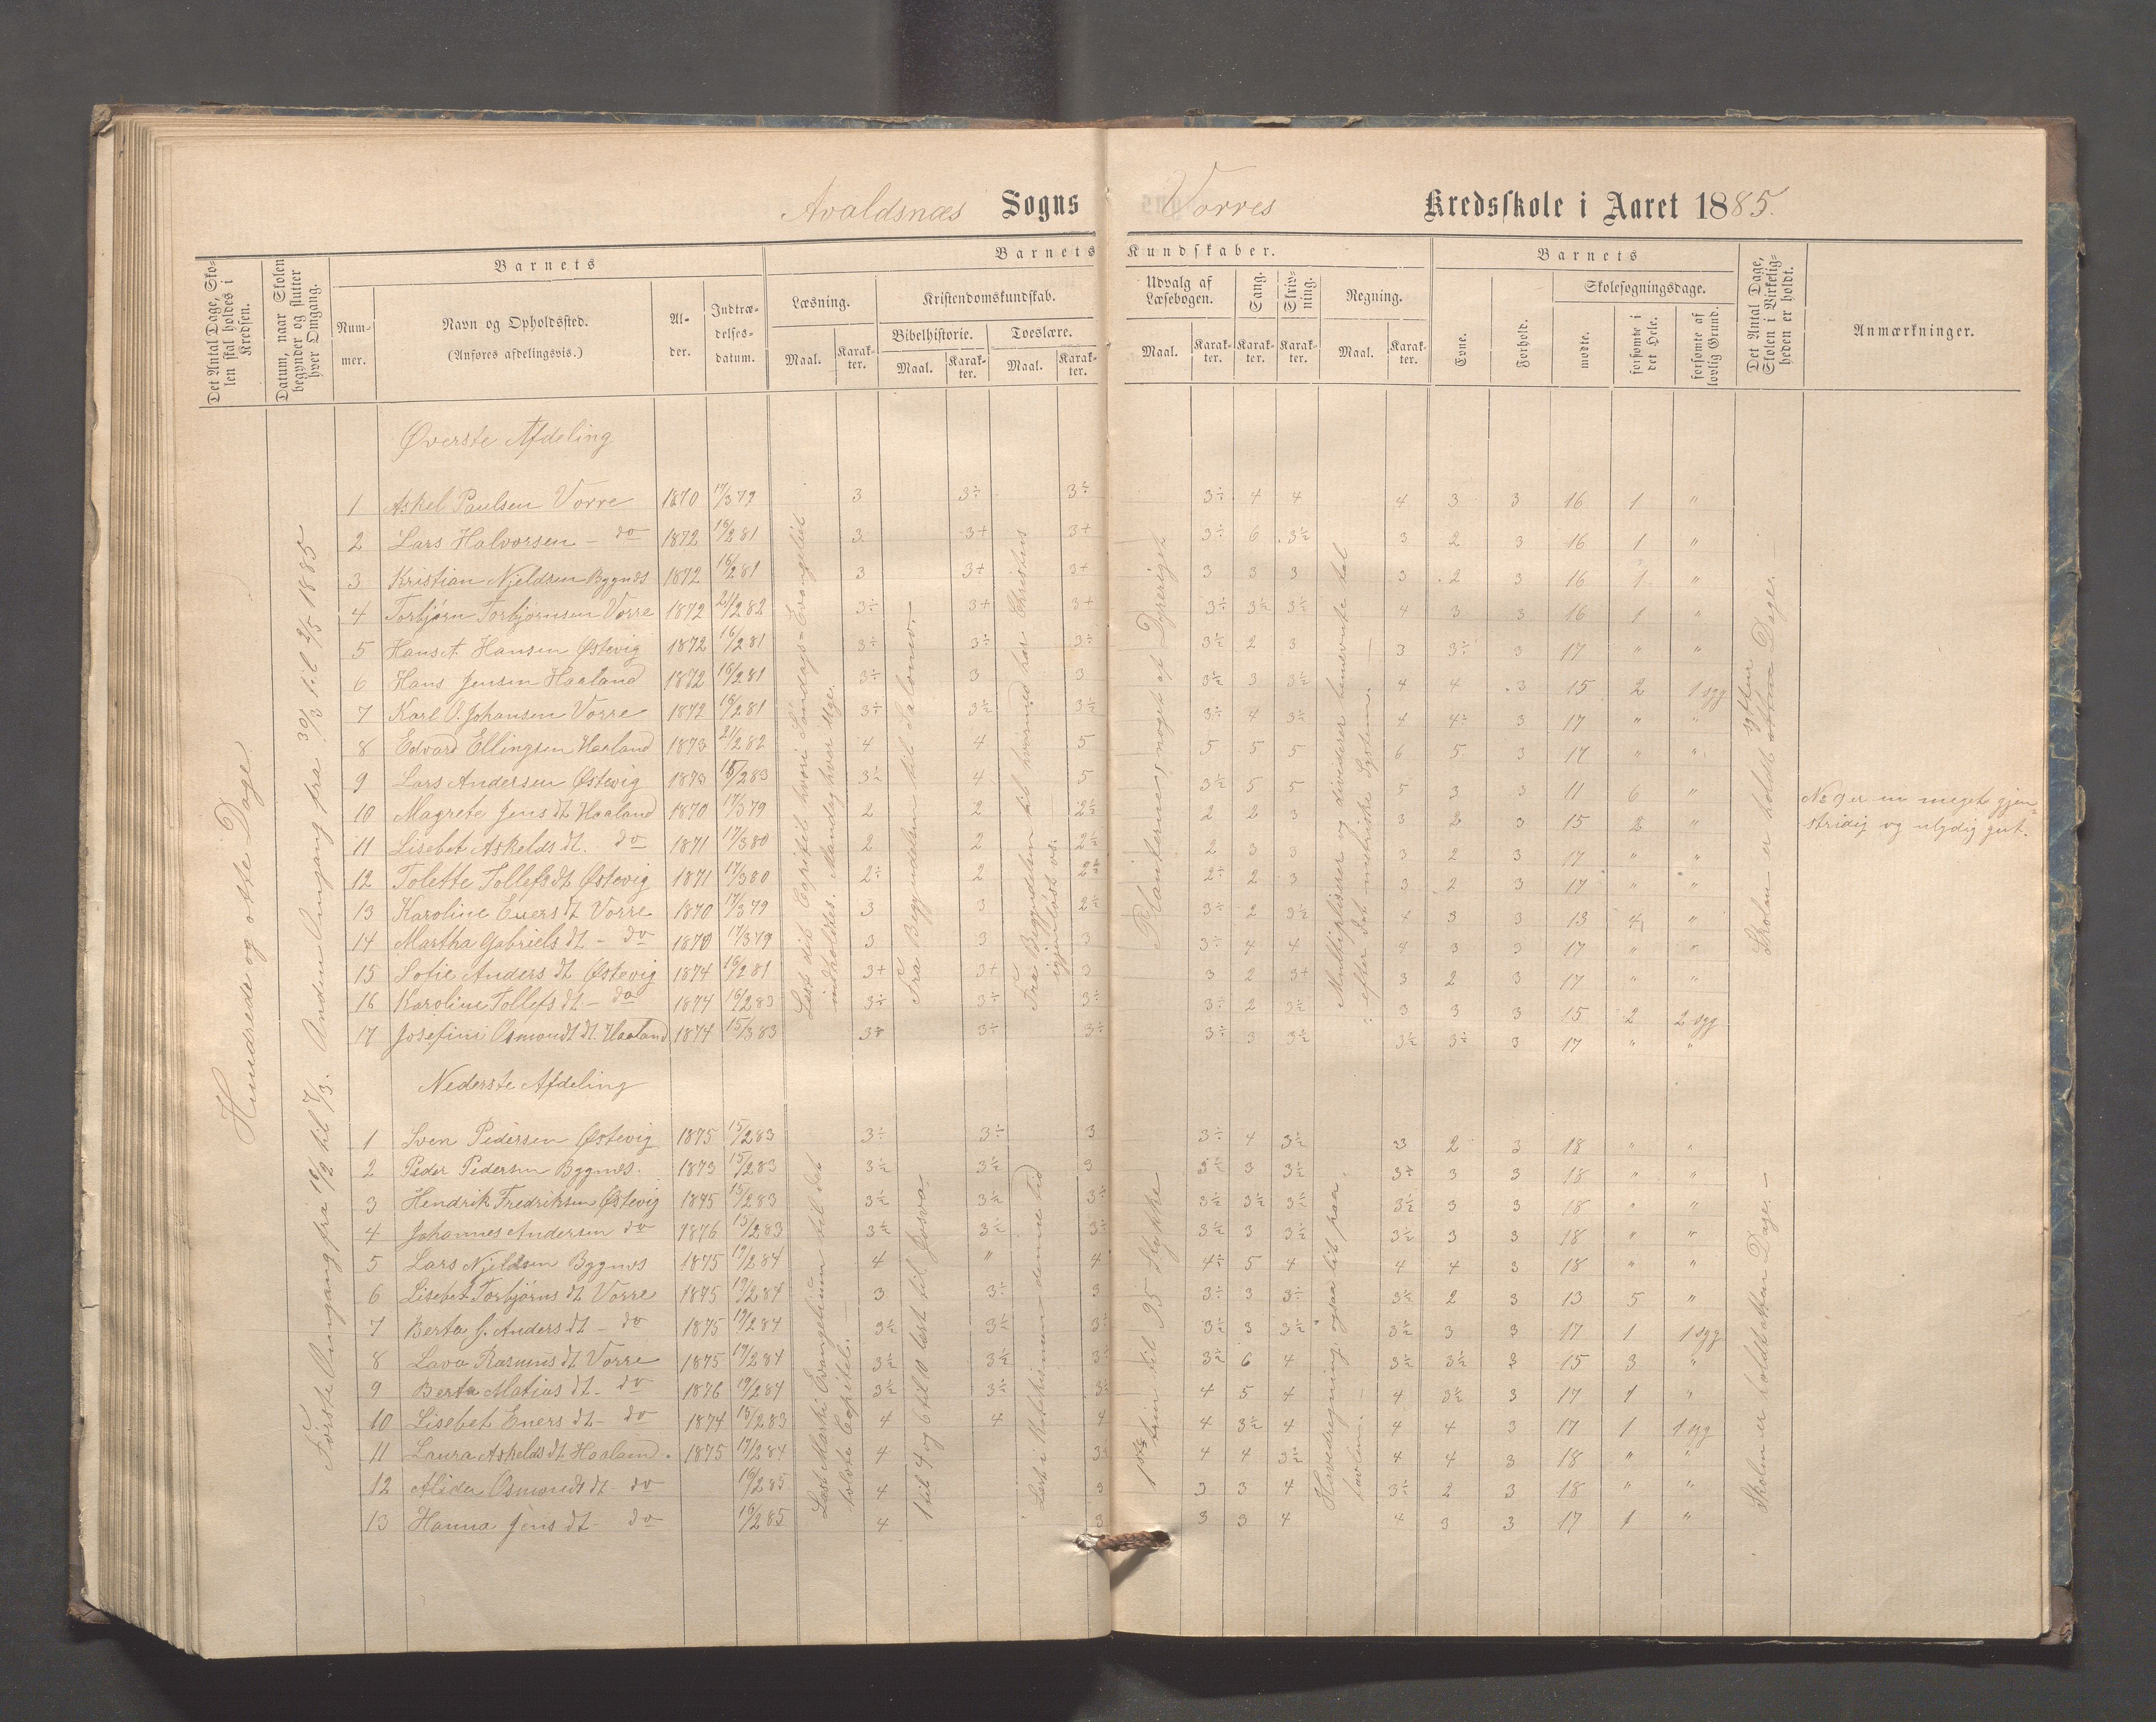 Avaldsnæs Sogns Vorres Kredsskole i Aaret 1885.
Det Antal Dage, Skolen skal holdes i Kredsen.
Datum, naar Skolen begynder og slutter hver Omgang.
Barnets
Nummer.
Navn og Opholdssted.
(Anføres afdelingsvis.)
Alder.
Indtrædelsesdatum.
Barnets Kundskaber.
Læsning.
Maal. Karakter.
Kristendomskundskab.
Bibelhistorie. Troeslære.
Maal. Karakter. Maal. Karakter.
Udvalg af Læsebogen.
Maal. Karakter.
Sang. Karakter.
Skrivning. Karakter.
Regning.
Maal. Karakter.
Barnets
Evne. Forhold.
Skolesøgningsdage.
mødte. forsømte i det Hele. forsømte af lovlig Grund.
Det Antal Dage, Skolen i Virkeligheden er holdt.
Anmærkninger.
Hundrede og otte Dage
Første Omgang fra 16/2 til 7/3. Anden Omgang fra 30/3 til 2/5 1885
Øverste Afdeling
1 Askel Paulsen Vorre 1870 17/3 79 3 3÷ 3÷ 3÷ 4 4 4 3 3 16 1 "
2 Lars Halvorsen - do 1872 16/2 81 3 3+ 3+ 3÷ 6 3½ 3 2 3 16 1 "
3 Kristian Njeldsen Bygnes 1872 16/2 81 3 3+ 3+ 3 3 3 3 2 3 16 1 "
4 Torbjørn Torbjørnsen Vorre 1872 21/2 82 3÷ 3+ 3+ 3÷ 3½ 3½ 4 3 3 16 1 "
5 Hans A. Hansen Østevig 1872 16/2 81 3÷ 3÷ 3÷ 3½ 2 3 3 3÷ 3 17 " "
6 Hans Jensen Haaland 1872 16/2 81 3÷ 3 3 3½ 3 3½ 4 4 3 15 2 1 syg
7 Karl O. Johansen Vorre 1872 16/2 81 3÷ 3½ 3½ 3÷ 4 3½ 4 4÷ 3 17 " "
8 Edvard Ellingsen Haaland 1873 21/2 82 4 4 5 5 5 5 6 5 3 17 " "
9 Lars Andersen Østevig 1873 15/2 83 3½ 4 5 3½ 5 5 5 3 3 11 6 "
10 Magrete Jens dt Haaland 1870 17/3 79 2 2 2½ 2 2 3 3 2 3 15 2 "
11 Lisebet Askelds dt. do 1871 17/3 80 2 2 2½ 2 3 3 3 2 3 17 " "
12 Tolette Tollefs dt Østevig 1871 17/3 80 2÷ 2 2½ 2÷ 2 3 3 2 3 17 " "
13 Karoline Eners dt Vorre 1870 17/3 79 3 3 2½ 3÷ 2 3½ 4 3 3 13 4 "
14 Martha Gabriels dt - do 1870 17/3 79 3 3 3 3÷ 4 4 4 3 3 17 " "
15 Sofie Anders dt Østevig 1874 16/2 81 3+ 3+ 3 3 2 3+ 3 2 3 17 " "
16 Karoline Tollefs dt - do 1874 16/2 83 3÷ 3÷ 3÷ 3÷ 2 3½ 3 3 3 15 2 2 syg
17 Josefine Osmondt dt. Haaland 1874 15/3 83 3÷ 3÷ 3÷ 3÷ 3 3½ 3½ 3÷ 3 17 " "
Læst det Capitel hvori Søndags-Evangeliet indholdes. Mandag hver Uge.
Fra Begyndelsen til Salomo.-
Fra Begyndelsen til hvormed har Christus igjenløst os.
Planterne, noget af Dyreriget
Multipliserer og dividerer benævnte tal efter det metriske System.
Skolen er holdt sytten Dage.-
No 9 er en meget gjenstridig og ulydig gut.
Nederste Afdeling
1 Sven Pedersen Østevig 1875 15/2 83 3÷ 3÷ 3 3÷ 4 3½ 3 2 3 18 " "
2 Peder Pedersen Bygnes. 1873 15/2 83 3½ 3½ 3 3½ 3 3½ 3÷ 3 3 18 " "
3 Hendrik Fredriksen Østevig 1875 15/2 83 3½ 3½ 3÷ 3½ 3½ 3½ 3½ 3 3 18 " "
4 Johannes Andersen do 1876 15/2 83 3½ 3½ 3÷ 3½ 3 3½ 3½ 3 3 18 " "
5 Lars Njeldsen Bygnes 1875 19/2 84 4 " 4 4÷ 5 4 4 4 3 18 " "
6 Lisebet Torbjørns dt Vorre 1875 19/2 84 3 3÷ 3 3÷ 3 3÷ 3½ 2 3 13 5 "
7 Berta J. Anders dt - do 1875 19/2 84 3½ 3½ 3÷ 3½ 3 3½ 3½ 3 3 17 1 1 syg
8 Lava Rasmus dt Vorre 1875 19/2 84 3½ 3½ 3½ 3½ 6 4 3½ 3½ 3 15 3 "
9 Berta Matias dt - do 1876 19/2 84 3½ 3½ 3½ 4 5 4 4 3½ 3 17 1 "
10 Lisebet Eners dt - do 1874 15/2 83 4 4 4 4 3½ 4 4 4 3 17 1 1 syg
11 Laura Askelds dt Haaland. 1875 19/2 84 4 3½ 4 4 3½ 4 4 3 18 " "
12 Alida Osmondt dt - do 16/2 85 4 3 3 3 4 3½ 2 3 18 " "
13 Hanna Jens dt - do 16/2 85 4 3 3 3 4 4 3 3 17 1 "
Læst Marki Evangelium til det tolvte Capitel.-
1 til 4 og 6 til 10 læst til Josva.
Læst i Katekismen denne tid
1ste trin til 95 Stykke
Hovedregning ogsaa lit paa tavlen.
Skolen er holdt atten Dage.-